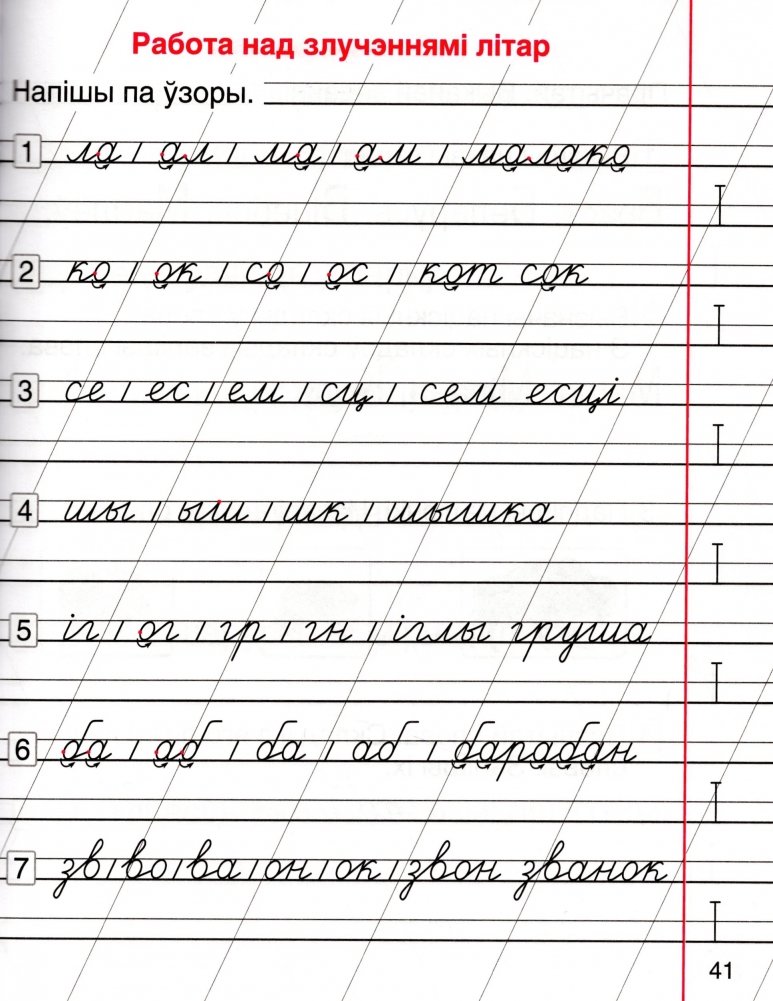 Работа над злучэннямі літар
Напішы па ўзоры.
1 ла ı ал ı ма ı ам ı малако
2 ко ı ок ı со ı ос ı кот сок
3 се ı ес ı ем ı сц ı сем есці
4 шы ı ыш ı шк ı шышка
5 іг ı ог ı гр ı гн ı іглы груша
6 ба ı аб ı ба ı аб ı барабан
7 зв ı во ı ва ı он ı ок ı звон званок
41